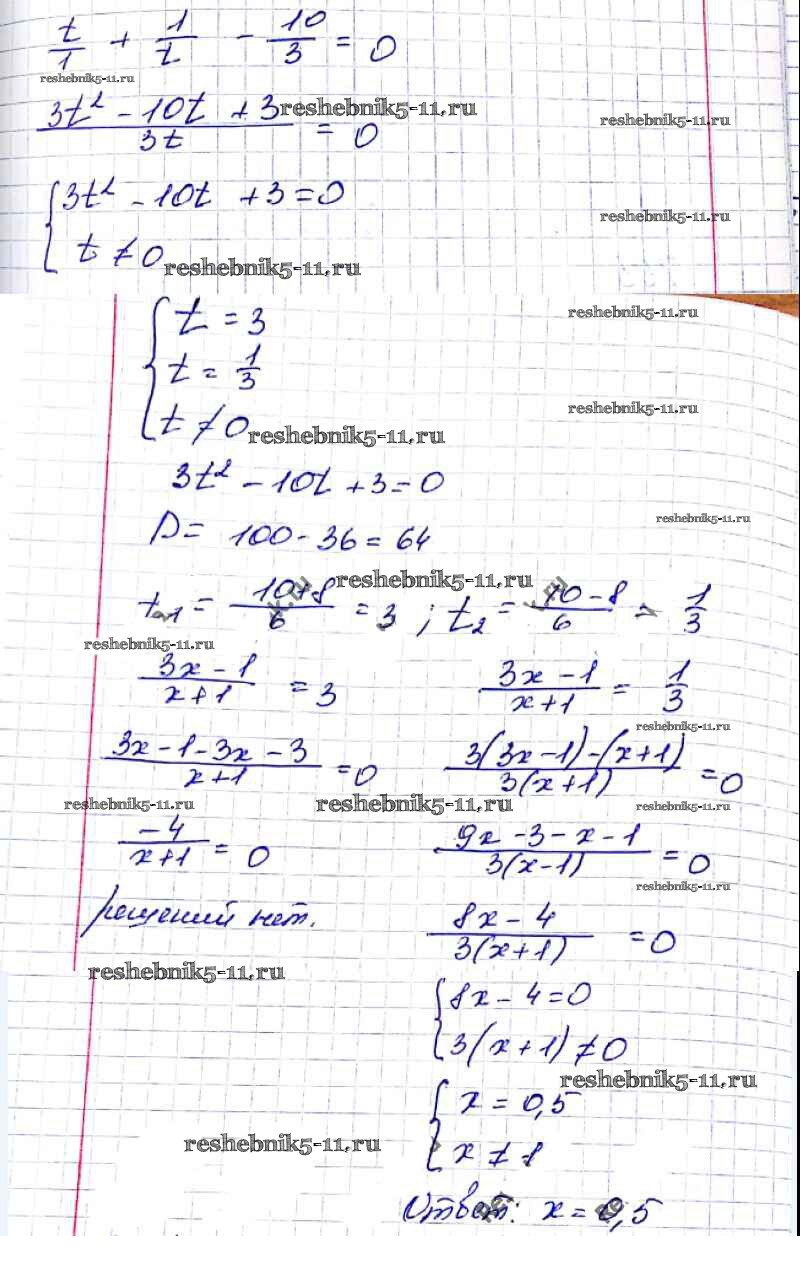 t/1 + 1/t - 10/3 = 0
reshebnik5-11.ru
(3t² - 10t + 3)/3t = 0
reshebnik5-11.ru
reshebnik5-11.ru
{ 3t² - 10t + 3 = 0
reshebnik5-11.ru
t ≠ 0
reshebnik5-11.ru
{ t = 3
reshebnik5-11.ru
t = 1/3
t ≠ 0
reshebnik5-11.ru
reshebnik5-11.ru
3t² - 10t + 3 = 0
reshebnik5-11.ru
D = 100 - 36 = 64
reshebnik5-11.ru
t₁ = (10+8)/6 = 3 ; t₂ = (10-8)/6 = 1/3
reshebnik5-11.ru
(3x - 1)/(x+1) = 3 (3x - 1)/(x+1) = 1/3
reshebnik5-11.ru
(3x - 1 - 3x - 3)/(x+1) = 0 (3(3x-1)-(x+1))/(3(x+1)) = 0
reshebnik5-11.ru
reshebnik5-11.ru
reshebnik5-11.ru
-4/(x+1) = 0 (9x - 3 - x - 1)/(3(x-1)) = 0
reshebnik5-11.ru
решений нет. (8x - 4)/(3(x+1)) = 0
reshebnik5-11.ru
{ 8x - 4 = 0
3(x+1) ≠ 0
reshebnik5-11.ru
{ x = 0,5
reshebnik5-11.ru
x ≠ 1
Ответ: x = 0,5